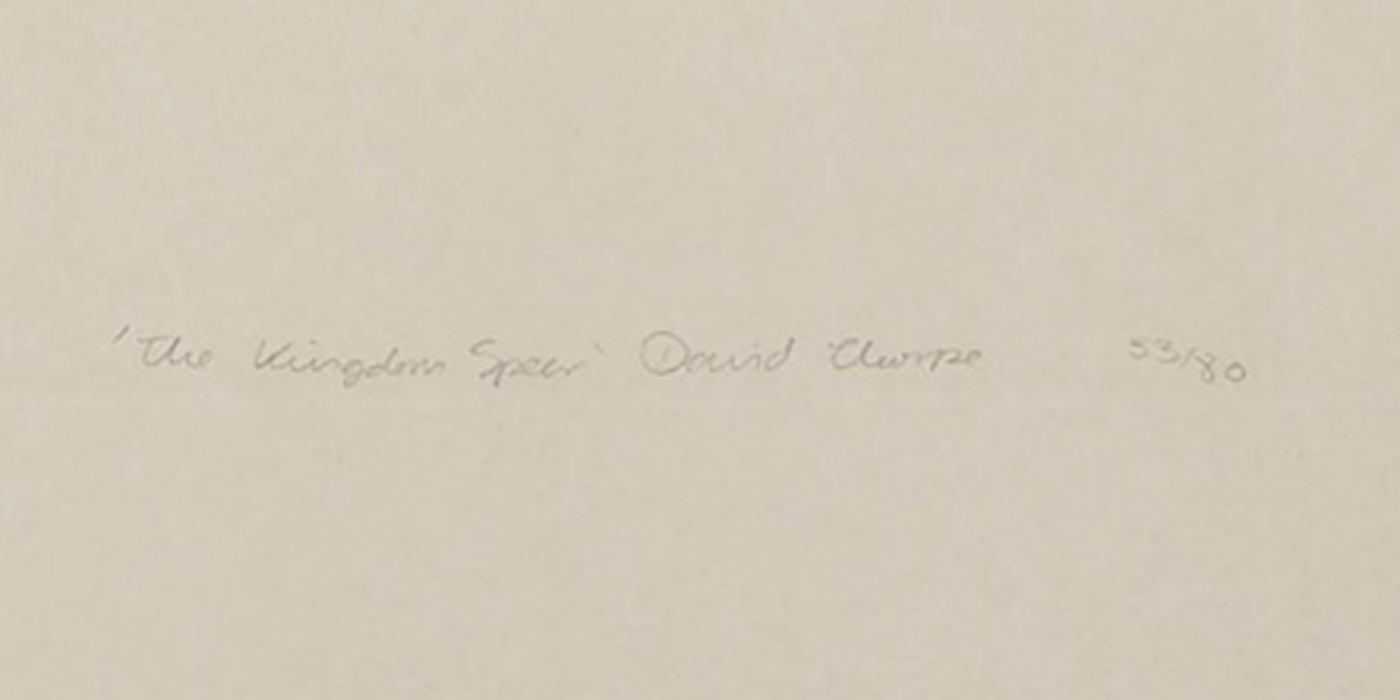 'The Kingdom Spear' David Thorpe 53/80